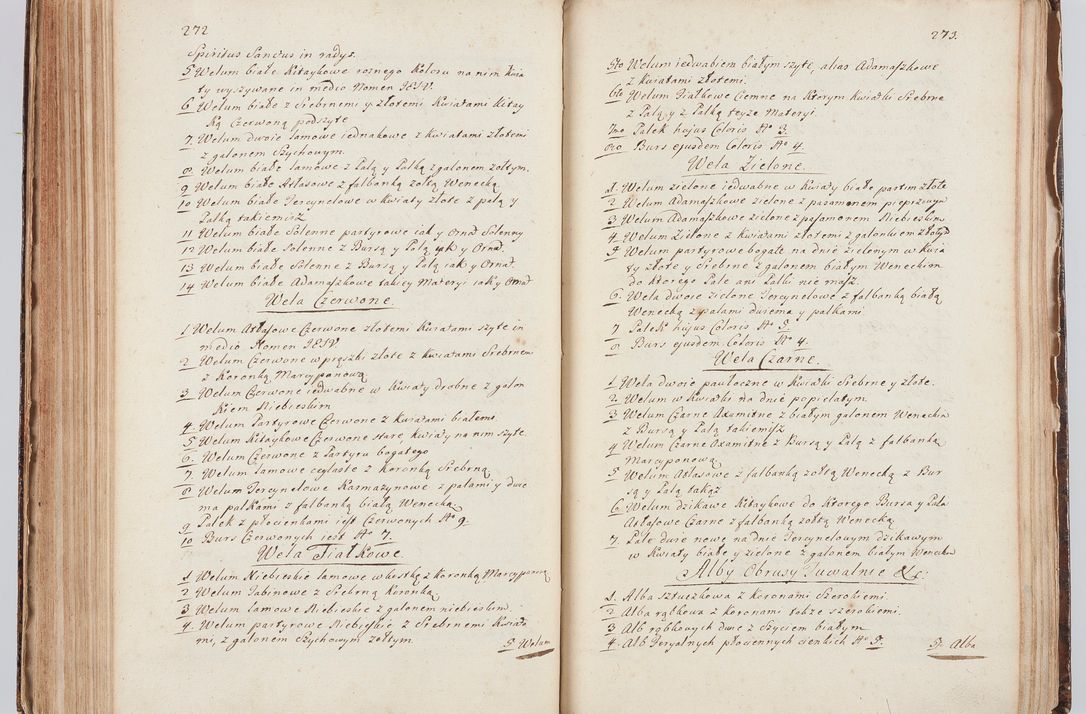 272
Spiritus Sanctus in radys.
5 Welum białe Kitaykowe rosnego Koloru na nim kwia
ty wyszywane in medio Nomen JESV.
6 Welum białe z Srebrnemi y złotemi Kwiatami Kitay
ką Czerwoną podszyte
7. Welum dwoie lamowe iednakowe z kwiatami złotemi
z galonem Szychowym.
8. Welum białe lamowe z Palą y Palką z galonem zołtym.
9 Welum białe Atłasowe z falbanką zołtą Wenecką.
10 Welum białe Tercynelowe w kwiaty złote z palą y
Palką takiemisz
11 Welum białe Solenne partyrowe iak y Ornat Solenny
12 Welum białe Solenne z Bursą y Palą iak y Ornat.
13 Welum białe Solenne z Bursą y Palą iak y Ornat.
14 Welum białe Adamaszkowe takiey Materyi iak y Ornat
Wela Czerwone.
1 Welum Atłasowe Czerwone złotemi Kwiatami szyte in
medio Nomen JESV
2 Welum Czerwone w prązki złote z kwiatami Srebrnem
z Koronką Marcyponową
3 Welum Czerwone iedwabne w Kwiaty drobne z galon
kiem Niebieskim
4. Welum Partyrowe Czerwone z Kwiatami białemi
5 Welum Kitaykowe Czerwone stare, kwiaty na nim szyte.
6. Welum Czerwone z Partyru bogatego
7. Welum lamowe ceglaste z Koronką Srebrną
8 Welum Tercynelowe Karmazynowe z palami y dwie
ma palkami z falbanką białą Wenecką
9. Palek z płocienkami iest Czerwonych No 9.
10 Burs Czerwonych iest No 7.
Wela Fiałkowe.
1 Welum Niebieskie lamowe w kestkę z Koronką Marcyponową
2 Welum Tabinowe z Srebrną Koronką
3 Welum lamowe Niebieskie z galonem niebieskim.
4. Welum partyrowe Niebieskie z Srebrnemi Kwiata
mi, z galonem Szychowym zołtym.
5 Welum
273.
5to Welum iedwabiem białym szyte, alias Adamaszkowe
z kwiatami złotemi.
6to Welum Fiałkowe Ciemne na ktorym Kwiatki Srebrne
z Palą y z Palką teyze Materyi
7mo Palek hujus Coloris No 3.
8vo Burs ejusdem Coloris No 4.
Wela Zielone.
1. Welum zielone iedwabne w Kwiaty białe partim złote
2 Welum Adamaszkowe zielone z pasamonem pieprzowym
3. Welum Adamaszkowe zielone z pasomonem Niebieskim
4. Welum Zielone z kwiatami złotemi z galonkiem złotym
5 Welum partyrowe bogate na dnie zielonym w kwia
ty złote y Srebrne z galonem białym Weneckim
do ktorego Pale ani Palki nie masz.
6. Wela dwoie zielone Tercynelowe z falbanką białą
Wenecką z palami dwiema y palkami
7 Palek hujus Coloris No 5.
8 Burs ejusdem Coloris No 4.
Wela Czarne.
1 Wela dwoie pauloczne w Kwiatki Srebrne y złote.
2. Welum w Kwiatki na dnie popielatym.
3 Welum Czarne Axamitne z białym galonem Weneckim
z Bursą y Palą takiemisz
4 Welum Czarne Axamitne z Bursą y Palą z falbanką
Marcyponową
5 Welum Atłasowe z falbanką zołtą Wenecką z Bur
są y Palą takąz
6. Welum dzikawe Kitaykowe do ktorego Bursa y Pala
Atłasowe Czarne z falbanką zołtą Wenecką.
7. Pale dwie nowe na dnie Tercynelowym dzikawym
w Kwiaty białe y zielone z galonem białym Weneckim
Alby Obrusy Tuwalnie &c:
1. Alba sztuczkowa z Koronami Szerokiemi.
2 Alba rąbkowa z Koronami tokze szerokiemi.
3 Alb rąbkowych dwie z Szyciem białym
4. Alb Feryalnych płociennych cienkich No 5.
5. Alba